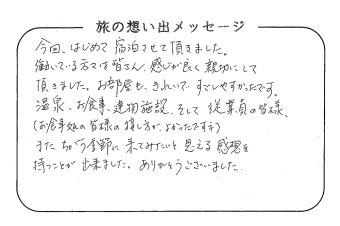 旅の想い出メッセージ
今回、はじめて宿泊させて頂きました。
働いている方々は皆さん、感じが良く親切にして
頂きました。お部屋も、きれいで、すごしやすかったです。
温泉、お食事、建物施設、そして従業員の皆様、
(お食事処の皆様の接し方が、よかったです)
また ちがう季節に 来てみたいと 思える 感想を
持つことが 出来ました。ありがとうございました。